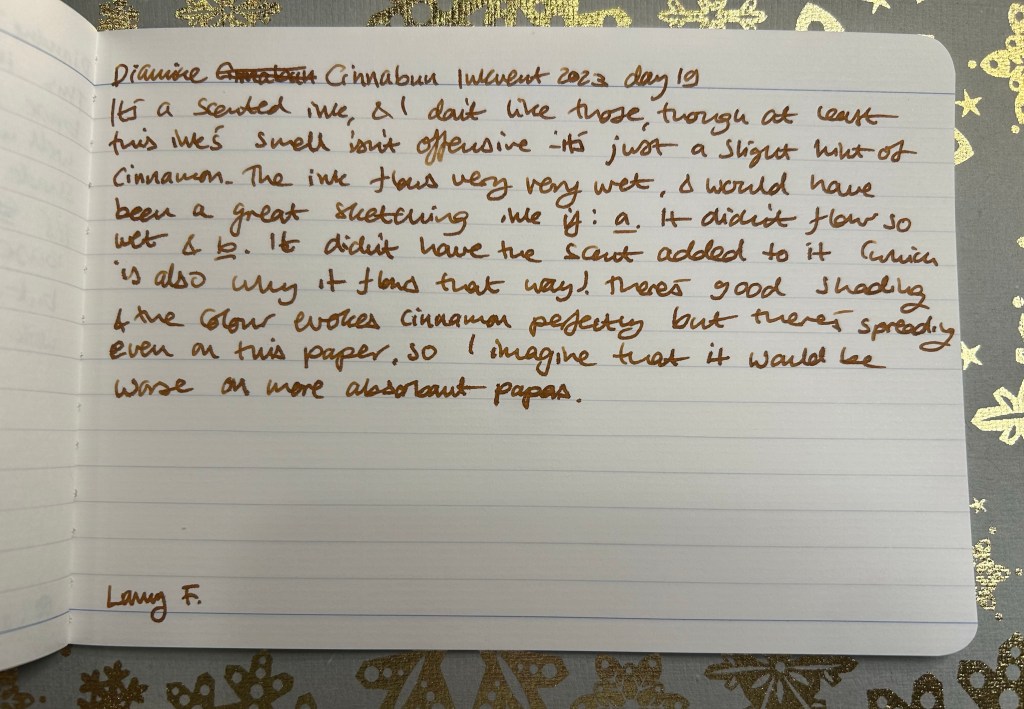 Diamine Cinnabun Inkvent 2023 day 19
It's a scented ink, & I don't like those, though at least
this ink's smell isn't offensive - it's just a slight hint of
Cinnamon. The ink flows very very wet, & would have
been a great sketching ink if: a. It didn't flow so
wet & b. It didn't have the scent added to it (which
is also why it flows that way! There's good shading
& the colour evokes cinnamon perfectly but there's spreading
even on this paper, so I imagine that it would be
worse on more absorbant papers.
F.